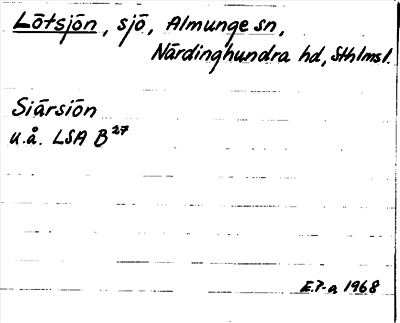 Lötsjön, sjö, Almunge sn,
Närdinghundra hd, Sthlmsl.
Siärsiön
u.å. LSA B 27
E.P-a 1968